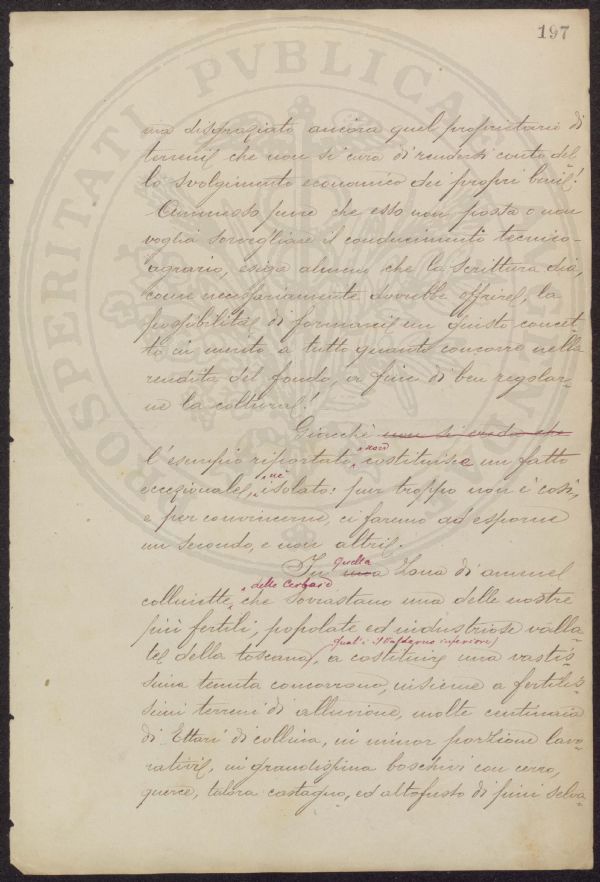 197
PROSPERITATI PVBLICAE
ma disgraziato ancora quel proprietario di
terreni che non si cura di rendersi conto del-
lo svolgimento economico dei propri beni!
Ammesso pure che esso non possa o non
voglia sorvegliare il conducimento tecnico-
agrario, esiga almeno che la scrittura dia,
come necessariamente dovrebbe offrire, la
possibilità di formarci un giusto concet-
to in merito a tutto quanto concorre nella
rendita del fondo, a fine di ben regolar-
ne la coltura!
Giacchè non si creda che
l'esempio riportato non costituisce un fatto
eccezionale, nè isolato: pur troppo non è così,
e per convincerne, ci faremo ad esporne
un secondo, e non altri.
In quella una Zona di amene
collinette, delle Cerbaie che sovrastano una delle nostre
più fertili, popolate ed industriose valla-
te della toscana, qual'è il Valdarno inferiore, a costituire una vastis-
sima tenuta concorrono, insieme a fertilis-
simi terreni di alluvione, molte centinaia
di Ettari di collina, in minor porzione lavo-
rativi, in grandissima boschivi con cerro,
querce, talora castagno, ed altofusto di pini selva-